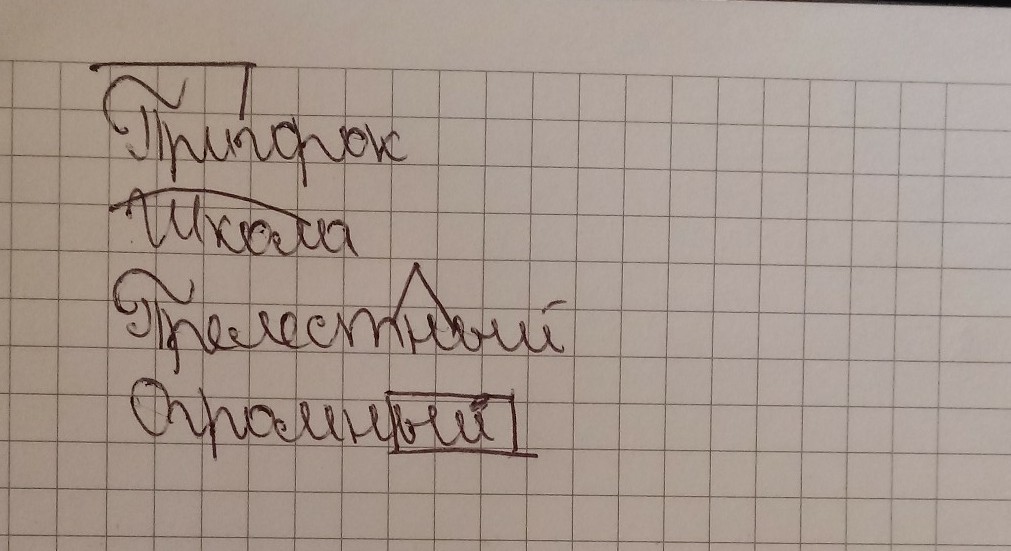 Пригорок
Школа
Прелестный
Огромный